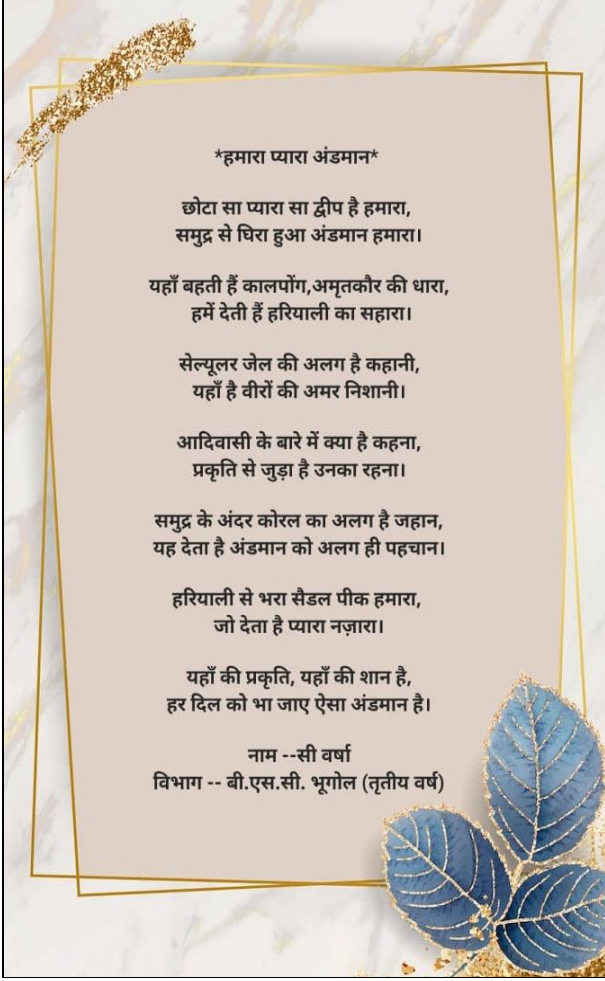 *हमारा प्यारा अंडमान*
छोटा सा प्यारा सा द्वीप है हमारा,
समुद्र से घिरा हुआ अंडमान हमारा।
यहाँ बहती हैं कालपोंग,अमृतकौर की धारा,
हमें देती हैं हरियाली का सहारा।
सेल्यूलर जेल की अलग है कहानी,
यहाँ है वीरों की अमर निशानी।
आदिवासी के बारे में क्या है कहना,
प्रकृति से जुड़ा है उनका रहना।
समुद्र के अंदर कोरल का अलग है जहान,
यह देता है अंडमान को अलग ही पहचान।
हरियाली से भरा सैडल पीक हमारा,
जो देता है प्यारा नज़ारा।
यहाँ की प्रकृति, यहाँ की शान है,
हर दिल को भा जाए ऐसा अंडमान है।
नाम --सी वर्षा
विभाग -- बी.एस.सी. भूगोल (तृतीय वर्ष)